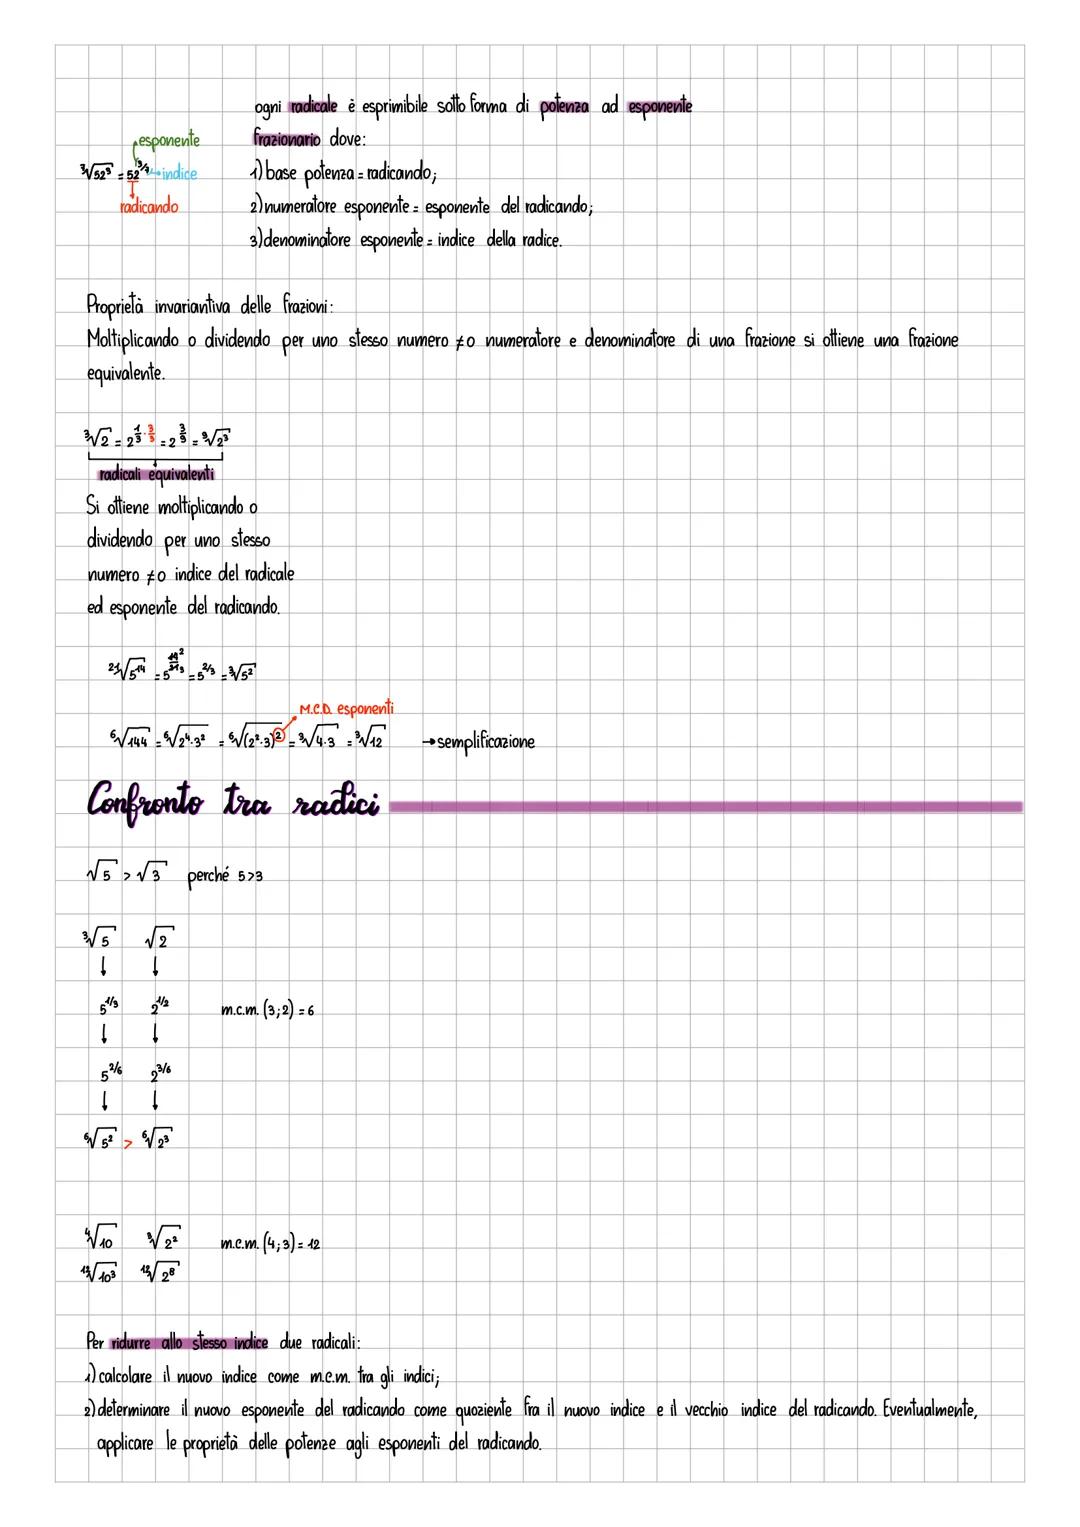 ogni radicale è esprimibile sotto forma di potenza ad esponente
frazionario dove:
esponente
³√52³ = 52^3/ indice
radicando
1) base potenza = radicando;
2) numeratore esponente = esponente del radicando;
3) denominatore esponente = indice della radice.
Proprietà invariantiva delle frazioni:
Moltiplicando o dividendo per uno stesso numero ≠0 numeratore e denominatore di una frazione si ottiene una frazione
equivalente.
³√2 = 2^(1/3 · 3/3) = 2^(3/9) = ⁹√2³
radicali equivalenti
Si ottiene moltiplicando o
dividendo per uno stesso
numero ≠0 indice del radicale
ed esponente del radicando.
²¹√5¹⁴ = 5^(14² / 21³) = 5^2/3 = ³√5²
M.C.D. esponenti
⁶√144 = ⁶√2⁴·3² = ⁶√(2²·3)² = ³√4·3 = ³√12 → semplificazione
Confronto tra radici
√5 > √3 perché 5>3
³√5 √2
↓ ↓
5^1/3 2^1/2 m.c.m. (3;2) = 6
↓ ↓
5^2/6 2^3/6
↓ ↓
⁶√5² > ⁶√2³
⁴√10 ³√2² m.c.m. (4;3) = 12
¹²√10³ ¹²√2⁸
Per ridurre allo stesso indice due radicali:
1) calcolare il nuovo indice come m.c.m. tra gli indici;
2) determinare il nuovo esponente del radicando come quoziente fra il nuovo indice e il vecchio indice del radicando. Eventualmente,
applicare le proprietà delle potenze agli esponenti del radicando.